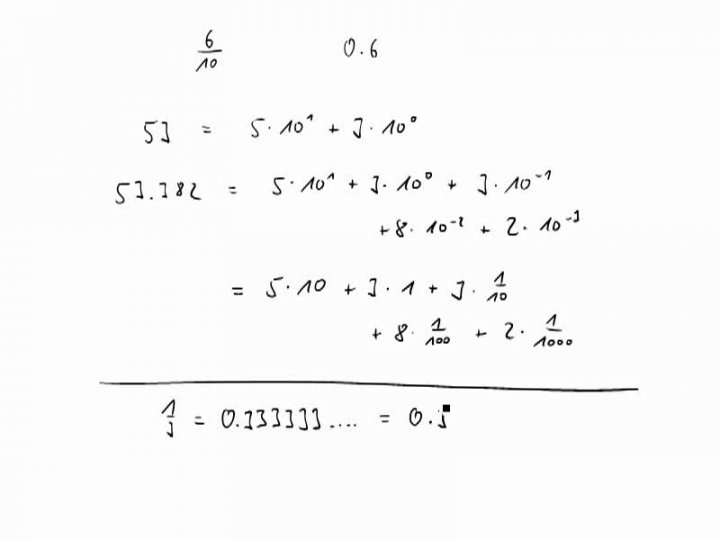 6/10 0.6
53 = 5·10¹ + 3·10⁰
53.382 = 5·10¹ + 3·10⁰ + 3·10⁻¹
+ 8·10⁻² + 2·10⁻³
= 5·10 + 3·1 + 3·1/10
+ 8·1/100 + 2·1/1000
1/3 = 0.333333.... = 0.3